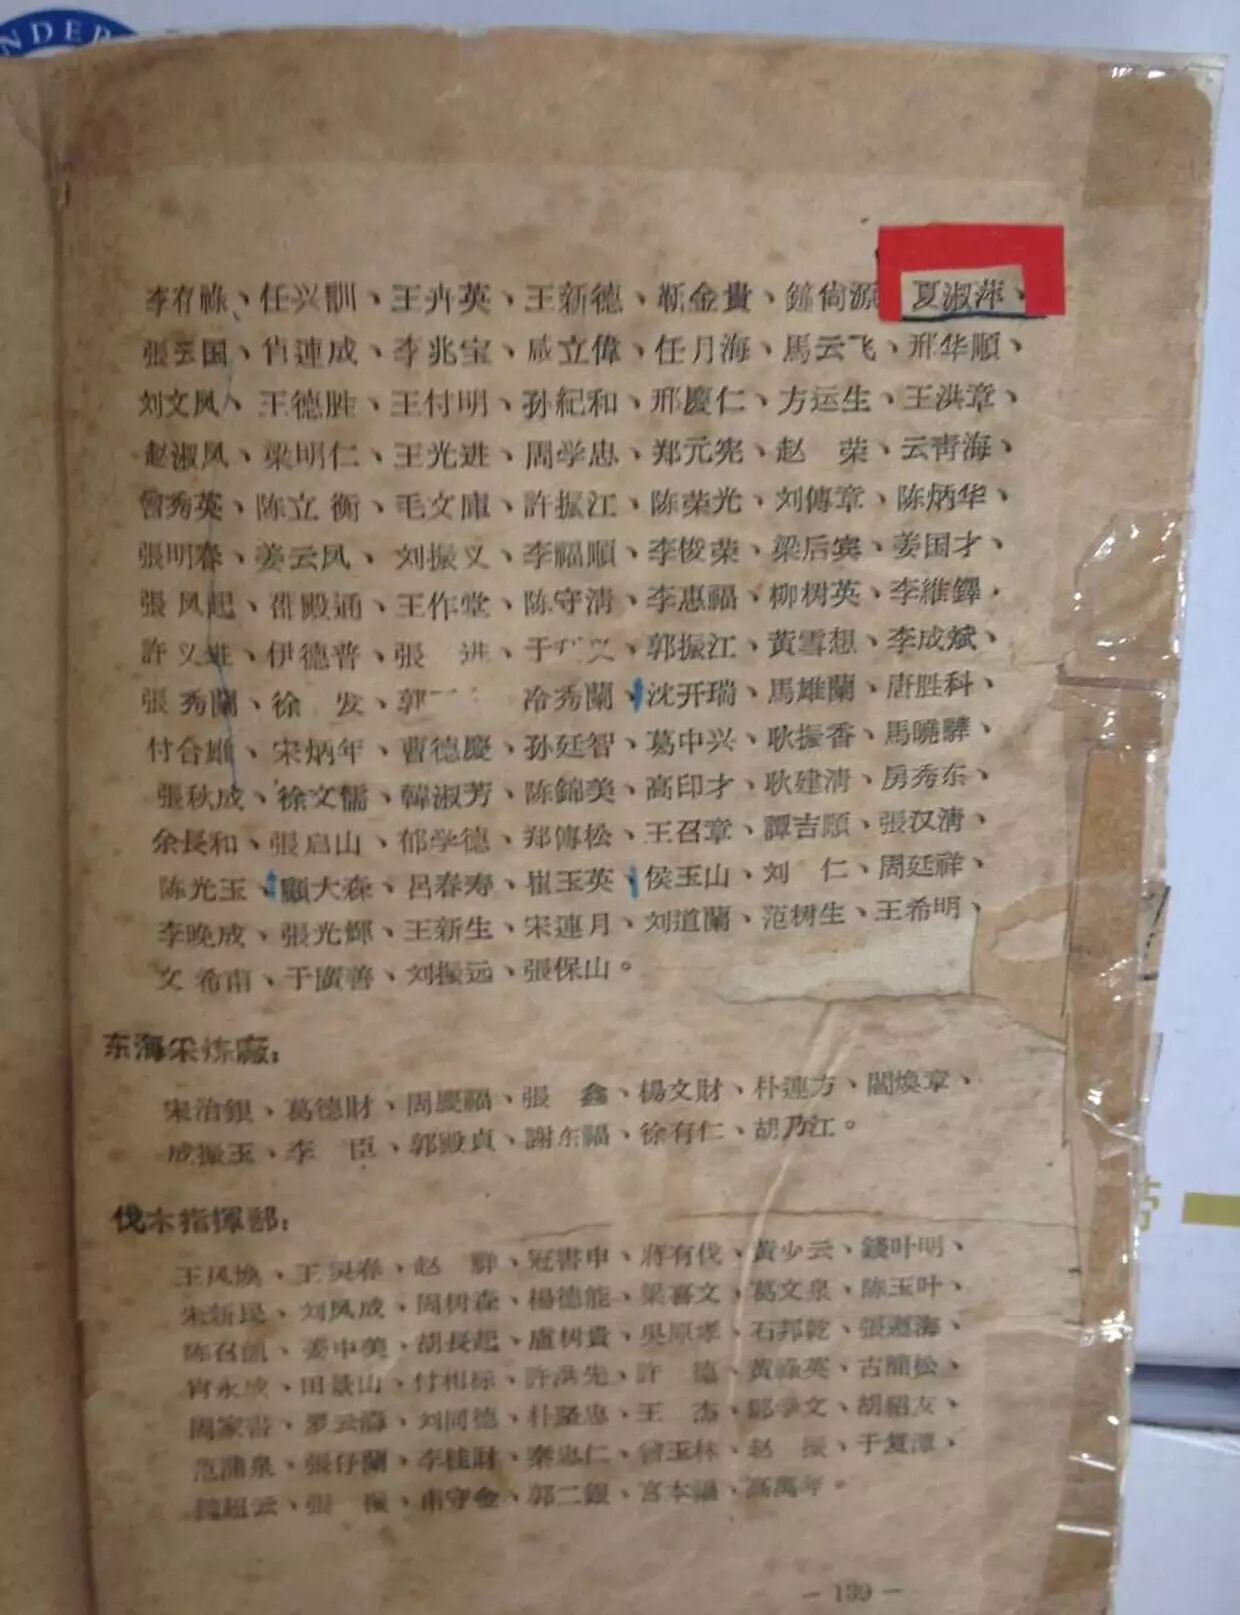 NDER
李有祿、任兴訓、王卉英、王新德、靳金貴、鍾尙源 夏淑萍、
張云国、肖連成、李兆宝、咸立偉、任月海、馬云飞、邢华順、
刘文凤、王德胜、王付明、孙紀和、邢慶仁、方运生、王洪章、
赵淑凤、梁明仁、王光进、周学忠、郑元宪、赵 荣、云靑海、
曾秀英、陈立衡、毛文庫、許振江、陈荣光、刘傳章、陈炳华、
張明春、姜云凤、刘振义、李福順、李俊荣、梁后宾、姜国才、
張凤起、邵殿通、王作堂、陈守清、李惠福、柳树英、李維鐸，
許义进、伊德普、張 进、于 义、郭振江、黃雪想、李成斌、
張秀蘭、徐 发、郭 冷秀蘭、沈开瑞、馬雄蘭、唐胜科、
付合雕、宋炳年、曹德慶、孙廷智、葛中兴、耿振香、馬曉驊、
張秋成、徐文儒、韓淑芳、陈錦美、高印才、耿建清、房秀东、
余長和、張启山、郁学德、郑傳松、王召章、譚吉順、張汉清、
陈光玉、顧大森、呂春寿、崔玉英、侯玉山、刘 仁、周廷祥、
李晚成、張光輝、王新生、宋連月、刘道蘭、范树生、王希明、
文希南、于廣善、刘振远、張保山。
东海采炼廠：
宋治銀、葛德財、周慶福、張 鑫、楊文財、朴連方、閻煥章、
成振玉、李 臣、郭殿貞、謝东福、徐有仁、胡乃江。
伐木指揮部：
王凤煥、王 春、赵 群、冠書申、蔣有伐、黃少云、錢叶明、
朱新民、刘凤成、周树森、楊德能、梁喜文、葛文泉、陈玉叶、
陈召凱、姜中美、胡長起、盧树貴、吳原孝、石邦乾、張遵海、
永成、田景山、付相标、許洪先、許 德、黃 英、古簡松、
周家書、罗云 、刘同德、朴隆忠、王 杰、 学文、胡紹友、
范蒲泉、張仔蘭、李桂財、秦忠仁、曾玉林、赵 振、于复潭、
超云、張 振、 守金、郭二銀、宮本福、高萬年。
— 139 —